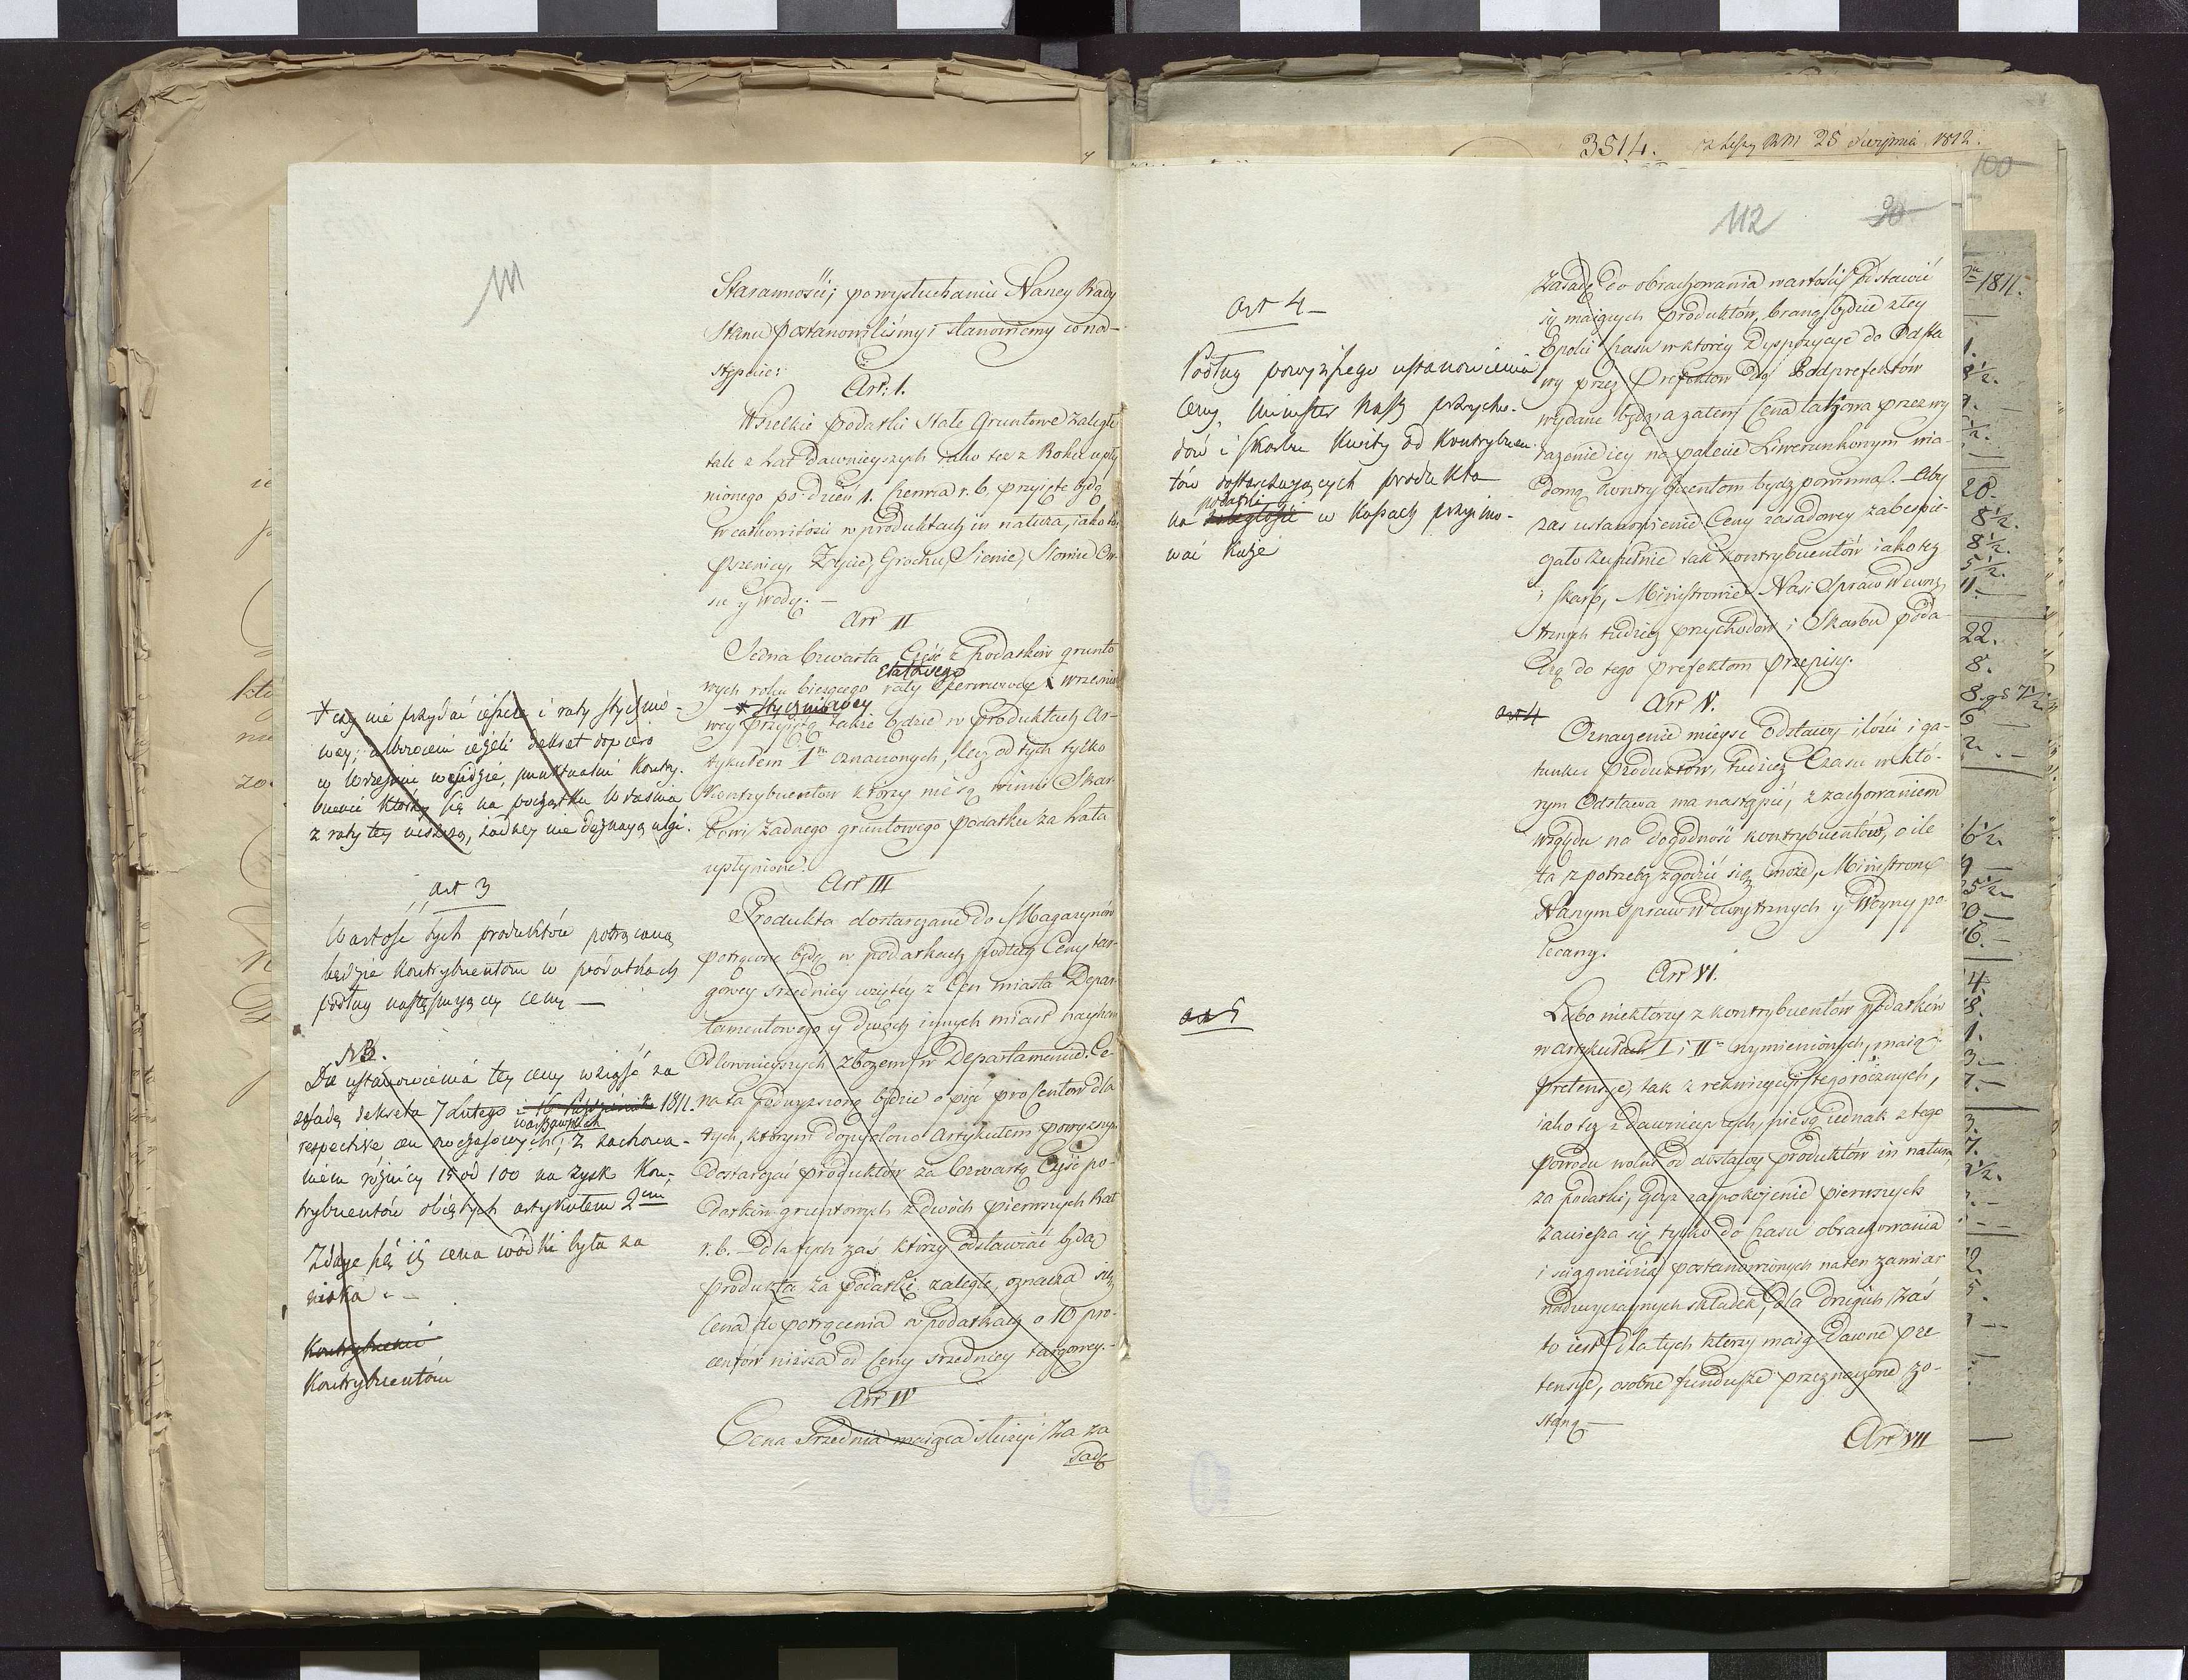 111
Staranność; po wysłuchaniu Naszey Rady
Stanu postanowiliśmy i stanowiemy co na-
stępuie:
Art: 1.
Wszelkie podatki stałe Gruntowe zaległe
tak z Lat dawnieyszych iako też z Roku upły
nionego po dzień 1. Czerwca r. b. przyięte będą
w całkowitości w produktach in natura, iako to:
Pszenicy, Życie, Grochu, Sienie, Słomie Ow-
sie y wodce. —
Art II
Jedna Czwarta Część z Podatków grunto
wych roku bieżącego raty Czerwcowey i wrześnio
Etatowego
* Styczniowey
wey przyięta także będzie w Produktach Ar-
tykułem I<sup>m</sup> oznaczonych, lecz od tych tylko
Kontrybuentów którzy nie są winni Skar-
bowi żadnego gruntowego podatku za Lata
upłynione.
Art III
Produkta dostarczane do Magazynów
potrącone będą w podatkach podług Ceny tar-
gowey średniey wziętey z Cen miasta Depar-
tamentowego y dwóch innych miast nayhan
dlownieyszych zbożem w Departamencie. Ce-
na ta podwyższona będzie o pięć procentów dla
tych, którym dozwolono Artykułem powyższym
dostarczać produktów za Czwartą Część po-
datków gruntowych z dwóch pierwszych Rat
r. b. — dla tych zaś którzy odstawiać będą
produkta za podatki zaległe, oznacza się
Cena do potrącenia w podatkach o 10 pro-
centów niższa od Ceny średniey targowey. —
Art IV
Cena średnia maiąca służyć za za
sadę
* czy nie przydać ieszcze i raty stycznio-
wey; albowiem ieżeli dekret dopiero
w Wrześniu wyidzie, punktualni kontry-
buenci którzy się na początku Września
z raty tey uiszczą, żadney nie doznaią ulgi.
art 3
Wartość tych produktów potrącaną
będzie kontrybuentom w podatkach
podług następuiącey ceny —
NB.
Do ustanowienia tey ceny wziąść za
zasadę dekreta 7 Lutego i 16 Października 1811.
warszawskich
respective cen roczasowych; z zachowa-
niem różnicy 15 od 100 na zysk Kon-
trybuentów obiętych artykułem 2<sup>im</sup>
Zdaie się iż cena wódki była za
niska. —
Kontrybuenci
Kontrybuentów
3514.
25 Sierpnia 1812.
100
112
30
art 4 —
Podług powyższego ustanowienia
Ceny, Minister Nasz przycho-
dów i Skarbu kwity od kontrybuen-
tów dostarczaiących produkta
podatki
na zaległości w Kassach przyimo-
wać każe
art 4
art 5
Zasadę do obrachowania wartości dostawić
się maiących produktów, braną będzie z tey
Epoki czasu w którey dyspozycye do Odsta
wy przez Prefektów do Podprefektów
wydane będą, a zatem Cena takowa przez wy
rażenie iey na palecie Liwerunkowym wia-
domą kontrybuentom bydź powinna. — Aby
zaś ustanowienie Ceny zasadowey zabespie-
czało zupełnie tak Kontrybuentów iako też
i Skarb, Ministrowie Nasi Spraw Wewnę
trznych tudzież przychodów i Skarbu poda-
dzą do tego prefektom przepisy.
Art V.
Oznaczenie mieysc Odstawy, ilości i ga-
tunku Produktów, tudzież Czasu w któ-
rym Odstawa ma nastąpić, z zachowaniem
względu na dogodność kontrybuentów, o ile
ta z potrzebą zgodzić się może, Ministrom
Naszym Spraw Wewnętrznych y Woyny po-
lecamy.
Art VI.
Lubo niektórzy z kontrybuentów podatków
w artykułach I i II<sup>m</sup> wymienionych, maią
pretensye, tak z rekwizycyi tegorocznych,
iako też z dawnieyszych, nie są iednak z tego
powodu wolni od dostawy produktów in natura,
za podatki, gdyż zaspokoienie pierwszych
zawiesza się tylko do czasu obrachowania
i ściągnienia postanowionych na ten zamiar
nadzwyczaynych składek, dla drugich zaś
to iest dla tych którzy maią dawne pre
tensye, osobne fundusze przeznaczone zo-
staną —
Art VII
1811.